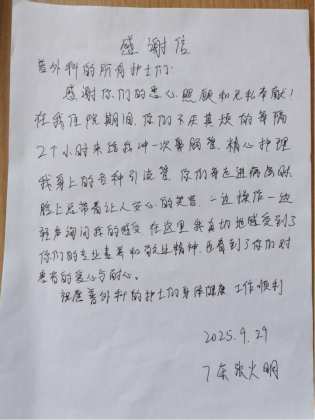 感谢信
普外科的所有护士们:
感谢你们的悉心照顾和无私奉献!
在我住院期间,你们不厌其烦的每隔
2个小时来给我冲一次鼻肠管,精心护理
我身上的各种引流管,你们每走进病房时,
脸上总带着让人安心的笑容,一边操作一边
轻声询问我的感受,在这里,我真切地感受到了
你们的专业素养和敬业精神,还看到了你们对
患者的爱心与耐心。
祝愿普外科的护士们身体健康 工作顺利
2025.9.29
7床张火明